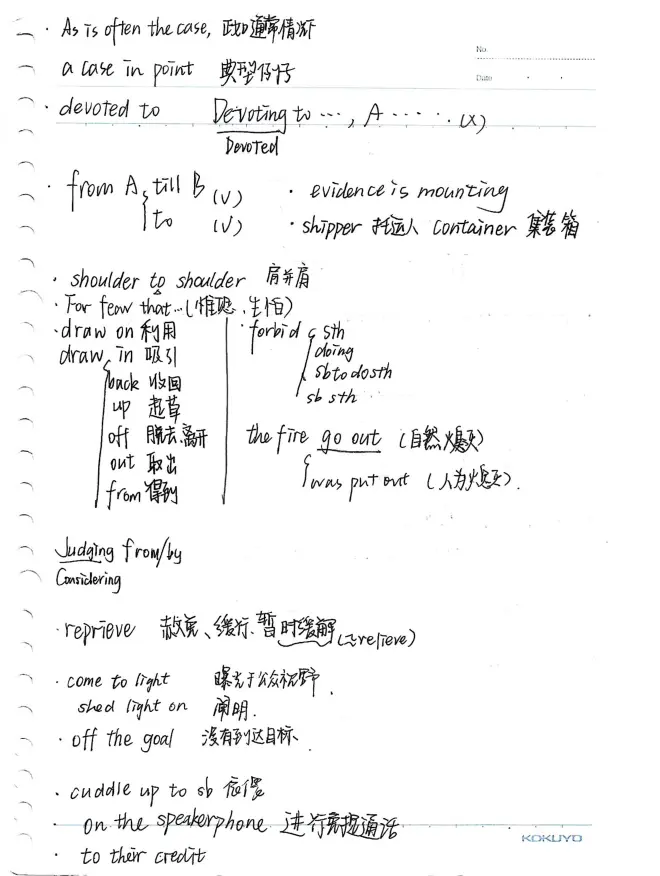 · As is often the case, 正如通常情况
No.
a case in point 典型仔仔
Date · ·
· devoted to Devoting to ···, A ····· (X)
Devoted
· from A till B (√) · evidence is mounting
to (√) · shipper 托运人 container 集装箱
· shoulder to shoulder 肩并肩
· For fear that ··· (惟恐、生怕)
· draw on 利用 · forbid sth
draw in 吸引 doing
back 收回 sb to do sth
up 起草 sb sth
off 脱去.离开 the fire go out (自然熄灭)
out 取出 was put out (人为熄灭).
from 得到
Judging from/by
Considering
· reprieve 赦免、缓行、暂时缓解 (≈relieve)
· come to light 曝光于公众视野.
shed light on 阐明.
· off the goal 没有到达目标.
· cuddle up to sb 依偎
· on the speakerphone 进行免提通话
KOKUYO
· to their credit